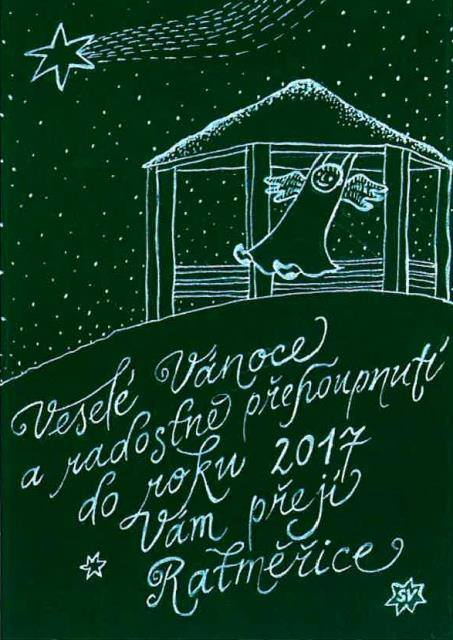 Veselé Vánoce
a radostné přehoupnutí
do roku 2017
Vám přejí
Ratměřice
SV